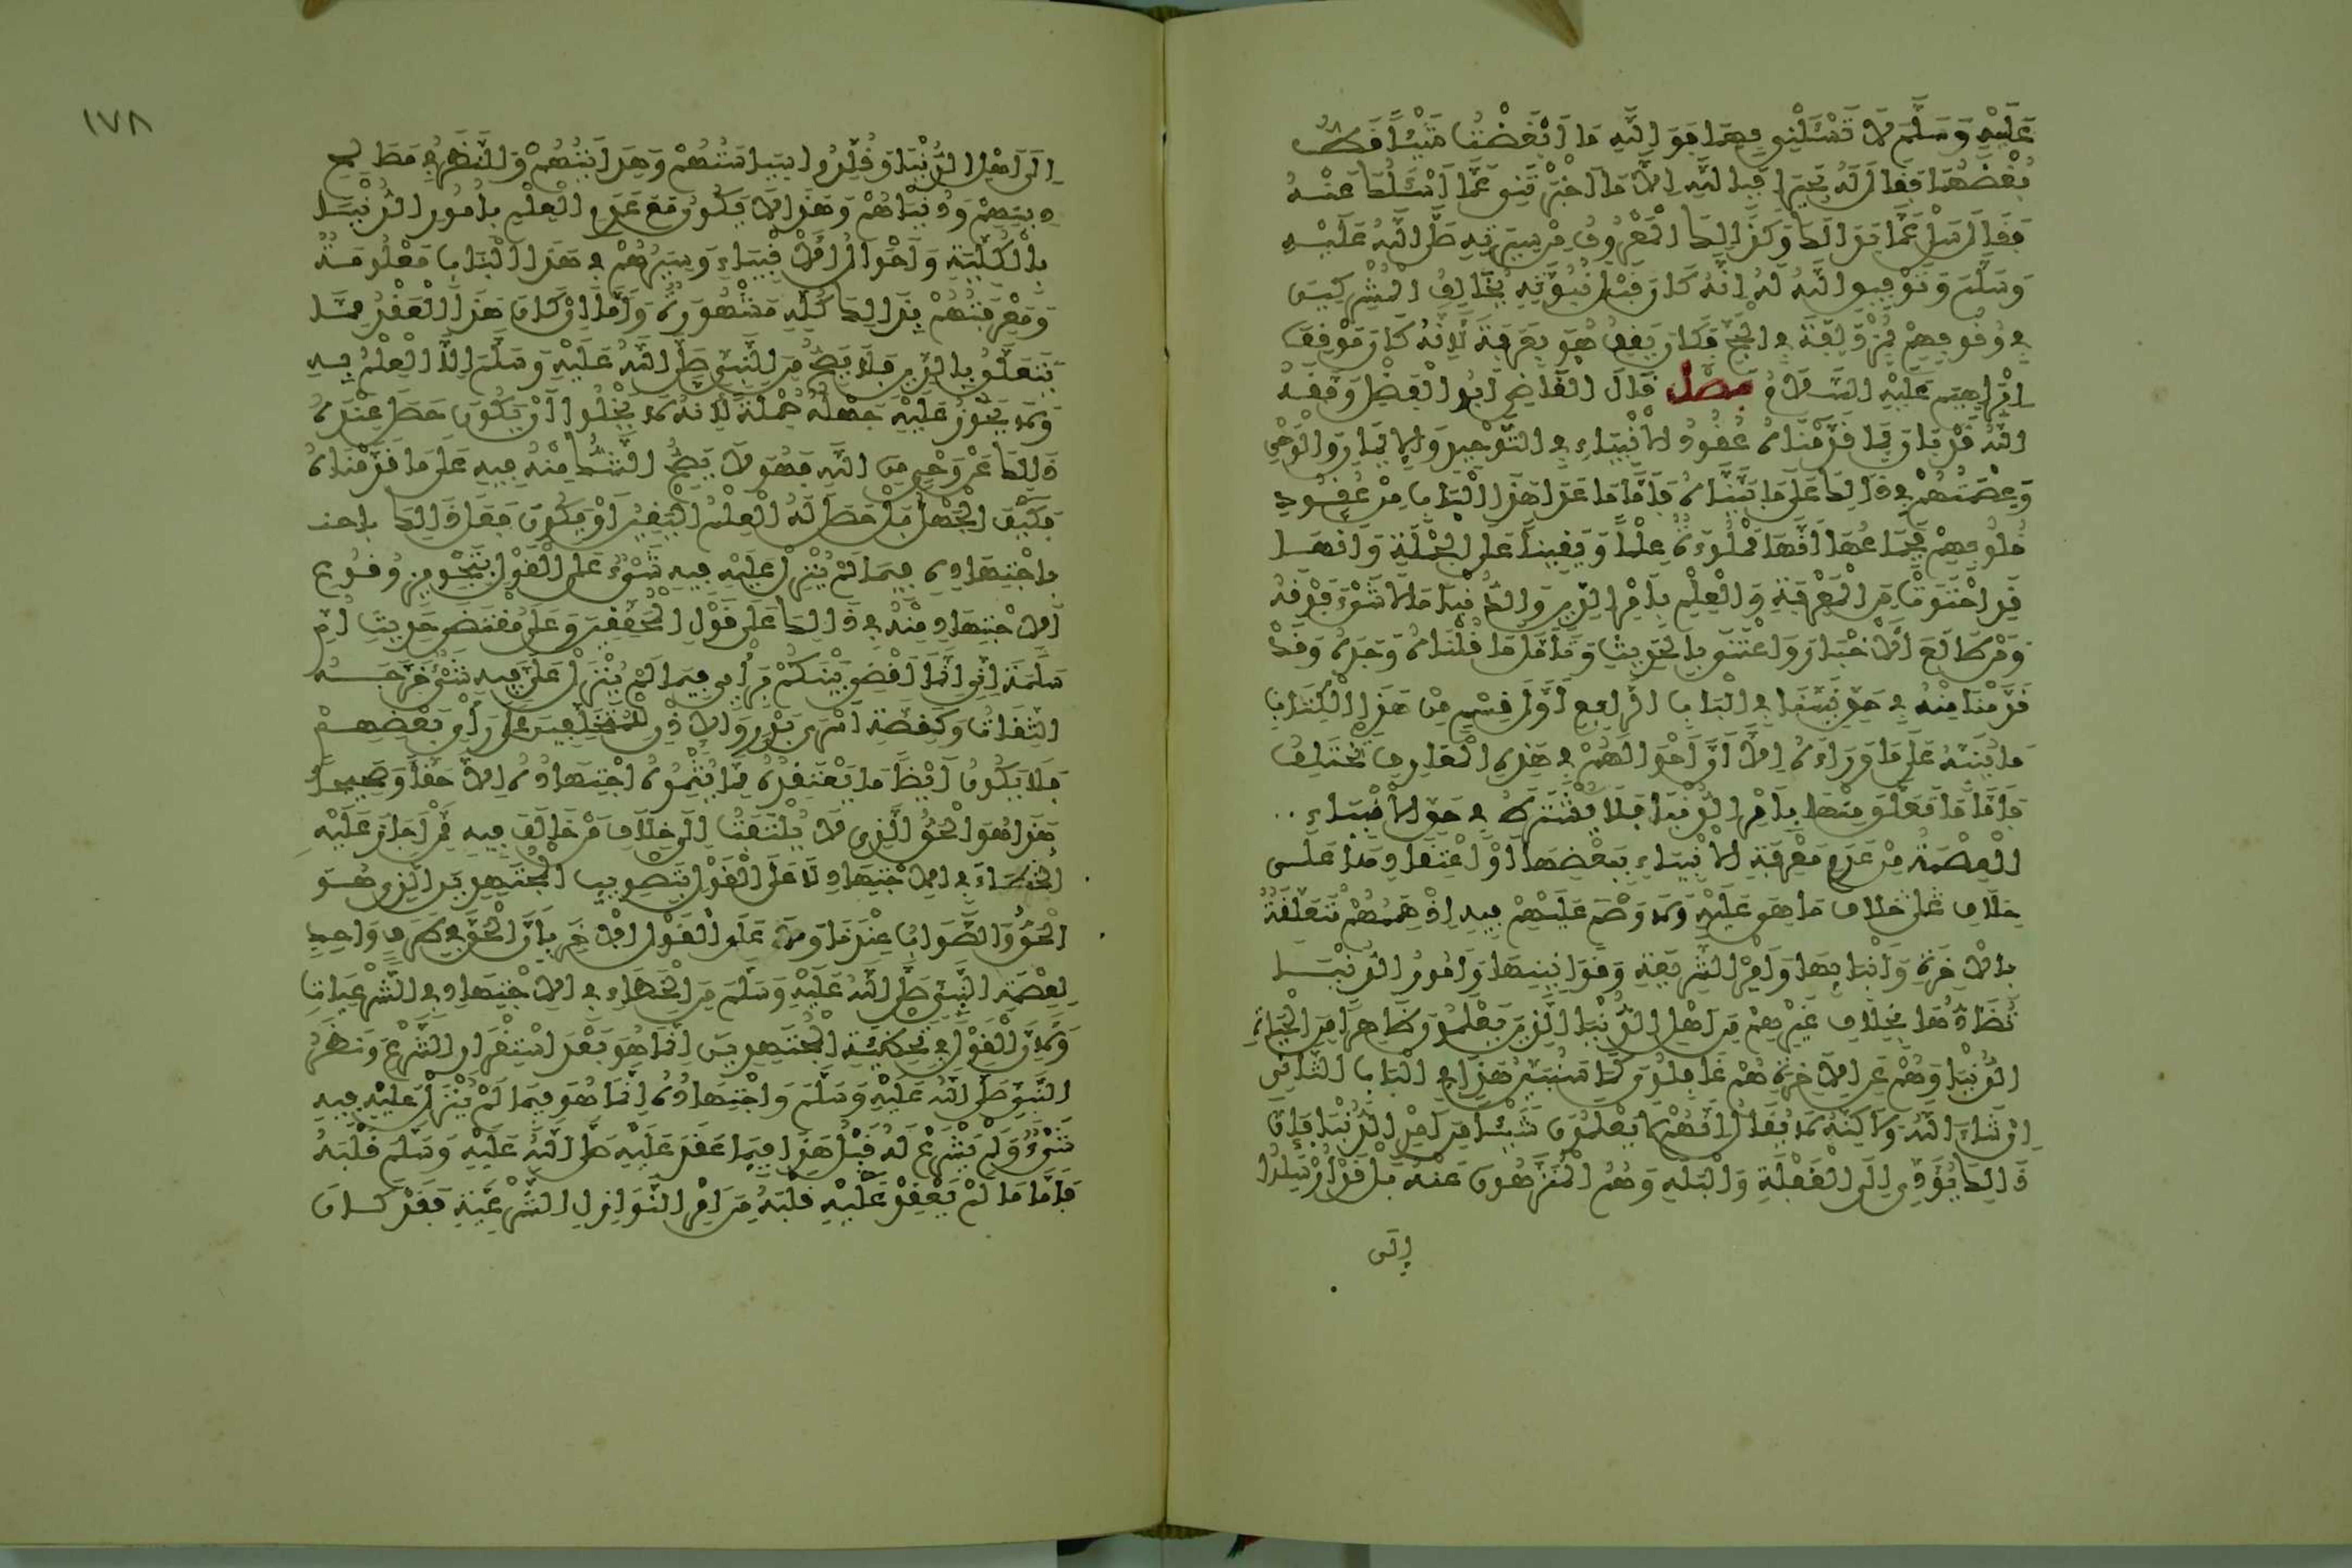 عَلَيْهِ وَسَلَّمَ لَا تَسْئَلْنِي بِهِمَا فَوَاللَّهِ مَا أَبْغَضْتُ شَيْئًا قَطُّ
بُغْضَهُمَا فَقَالَ لَهُ بَحِيرَا فَبِاللَّهِ إِلَّا مَا أَخْبَرْتَنِي عَمَّا أَسْئَلُكَ عَنْهُ
فَقَالَ سَلْ عَمَّا بَدَا لَكَ وَكَذَالِكَ الْمَعْرُوفُ مِنْ سِيرَتِهِ صَلَّى اللَّهُ عَلَيْهِ
وَسَلَّمَ وَتَوْفِيقِ اللَّهِ لَهُ إِنَّهُ كَانَ قَبْلَ نُبُوَّتِهِ يُخَالِفُ الْمُشْرِكِينَ
فِي وُقُوفِهِمْ بِمُزْدَلِفَةَ فِي الْحَجِّ فَكَانَ يَقِفُ هُوَ بِعَرَفَةَ لِأَنَّهُ كَانَ مَوْقِفَ
إِبْرَاهِيمَ عَلَيْهِ السَّلَامُ فصل قَالَ الْقَاضِي أَبُو الْفَضْلِ وَفَّقَهُ
اللَّهُ قَدْ بَانَ بِمَا قَدَّمْنَاهُ عُقُودُ الْأَنْبِيَاءِ فِي التَّوْحِيدِ وَالْإِيمَانِ وَالْوَحْيِ
وَعِصْمَتُهُمْ فِي ذَالِكَ عَلَى مَا بَيَّنَّاهُ فَأَمَّا مَا عَدَا هَذَا الْبَابِ مِنْ عُقُودِ
قُلُوبِهِمْ فَجِمَاعُهَا أَنَّهَا مَمْلُوءَةٌ عِلْمًا وَيَقِينًا عَلَى الْجُمْلَةِ وَأَنَّهَا
قَدِ احْتَوَتْ مِنَ الْمَعْرِفَةِ وَالْعِلْمِ بِأَمْرِ الدِّينِ وَالدُّنْيَا مَا لَا شَيْءَ فَوْقَهُ
وَمَنْ طَالَعَ الْأَخْبَارَ وَاعْتَنَى بِالْحَدِيثِ وَتَأَمَّلَ مَا قُلْنَاهُ وَجَدَهُ وَقَدْ
قَدَّمْنَا مِنْهُ فِي حَقِّ نَبِيِّنَا فِي الْبَابِ الرَّابِعِ أَوَّلَ قِسْمٍ مِنْ هَذَا الْكِتَابِ
مَا يُنَبِّهُ عَلَى مَا وَرَاءَهُ إِلَّا أَنَّ أَحْوَالَهُمْ فِي هَذِهِ الْمَعَارِفِ تَخْتَلِفُ
فَأَمَّا مَا تَعَلَّقَ مِنْهَا بِأَمْرِ الدُّنْيَا فَلَا يُشْتَرَطُ فِي حَقِّ الْأَنْبِيَاءِ
الْعِصْمَةُ مِنْ عَدَمِ مَعْرِفَةِ الْأَنْبِيَاءِ بِبَعْضِهَا أَوِ اعْتِقَادِهَا عَلَى
خِلَافِ عَلَى خِلَافِ مَا هِيَ عَلَيْهِ وَلَا وَصْمَ عَلَيْهِمْ فِيهِ إِذْ هِمَمُهُمْ مُتَعَلِّقَةٌ
بِالْآخِرَةِ وَأَنْبَائِهَا وَأَمْرِ الشَّرِيعَةِ وَقَوَانِينِهَا وَأُمُورُ الدُّنْيَا
تُضَادُّهَا بِخِلَافِ غَيْرِهِمْ مِنْ أَهْلِ الدُّنْيَا الَّذِينَ يَعْلَمُونَ ظَاهِرًا مِنَ الْحَيَاةِ
الدُّنْيَا وَهُمْ عَنِ الْآخِرَةِ هُمْ غَافِلُونَ كَمَا سَنُبَيِّنُ هَذَا فِي الْبَابِ الثَّانِي
إِنْ شَاءَ اللَّهُ وَلَاكِنَّهُ لَا يُقَالُ إِنَّهُمْ لَا يَعْلَمُونَ شَيْئًا مِنْ أَمْرِ الدُّنْيَا فَإِنَّ
ذَالِكَ يُؤَدِّي إِلَى الْغَفْلَةِ وَالْبَلَهِ وَهُمُ الْمُنَزَّهُونَ عَنْهُ بَلْ قَدْ أُرْسِلُوا
إلى
١٧٨
إِلَى أَهْلِ الدُّنْيَا وَقُلِّدُوا سِيَاسَتَهُمْ وَهِدَايَتَهُمْ وَالنَّظَرَ فِي مَصَالِحِ
دِينِهِمْ وَدُنْيَاهُمْ وَهَذَا لَا يَكُونُ مَعَ عَدَمِ الْعِلْمِ بِأُمُورِ الدُّنْيَا
بِالْكُلِّيَّةِ وَأَحْوَالُ الْأَنْبِيَاءِ وَسِيَرُهُمْ فِي هَذَا الْبَابِ مَعْلُومَةٌ
وَمَعْرِفَتُهُمْ بِذَالِكَ كُلِّهِ مَشْهُورَةٌ وَأَمَّا إِنْ كَانَ هَذَا الْعَقْدُ مِمَّا
يَتَعَلَّقُ بِالدِّينِ فَلَا يَصِحُّ مِنَ النَّبِيِّ صَلَّى اللَّهُ عَلَيْهِ وَسَلَّمَ إِلَّا الْعِلْمُ بِهِ
وَلَا يَجُوزُ عَلَيْهِ جَهْلُهُ جُمْلَةً لِأَنَّهُ لَا يَخْلُوا أَنْ يَكُونَ حَصَلَ عِنْدَهُ
ذَالِكَ عَنْ وَحْيٍ مِنَ اللَّهِ فَهُوَ لَا يَصِحُّ الشَّكُّ مِنْهُ فِيهِ عَلَى مَا قَدَّمْنَاهُ
فَكَيْفَ الْجَهْلُ بَلْ حَصَلَ لَهُ الْعِلْمُ الْيَقِينُ أَوْ يَكُونَ فَعَلَ ذَالِكَ
بِاجْتِهَادِهِ فِيمَا لَمْ يُنْزَلْ عَلَيْهِ فِيهِ شَيْءٌ عَلَى الْقَوْلِ بِتَجْوِيزِ وُقُوعِ
الْاجْتِهَادِ مِنْهُ فِي ذَالِكَ عَلَى قَوْلِ الْمُحَقِّقِينَ وَعَلَى مُقْتَضَى حَدِيثِ أُمِّ
سَلَمَةَ إِنِّي إِنَّمَا أَقْضِي بَيْنَكُمْ بِرَأْيِي فِيمَا لَمْ يُنْزَلْ عَلَيَّ فِيهِ شَيْءٌ خَرَّجَهُ
الثِّقَاتُ وَكَقِصَّةِ أَسْرَى بَدْرٍ وَالْإِذْنِ لِلْمُتَخَلِّفِينَ عَلَى رَأْيِ بَعْضِهِمْ
فَلَا يَكُونُ أَيْضًا مَا يَعْتَقِدُهُ مِمَّا يُثْمِرُهُ اجْتِهَادُهُ إِلَّا حَقًّا وَصَحِيحًا
هَذَا هُوَ الْحَقُّ الَّذِي لَا يُلْتَفَتُ إِلَى خِلَافِ مَنْ خَالَفَ فِيهِ مِمَّنْ أَجَازَ عَلَيْهِ
الْخَطَأَ فِي الْاجْتِهَادِ لَا عَلَى الْقَوْلِ بِتَصْوِيبِ الْمُجْتَهِدِينَ الَّذِي هُوَ
الْحَقُّ وَالصَّوَابُ عِنْدَنَا وَلَا عَلَى الْقَوْلِ الْآخَرِ بِأَنَّ الْحَقَّ فِي طَرَفٍ وَاحِدٍ
لِعِصْمَةِ النَّبِيِّ صَلَّى اللَّهُ عَلَيْهِ وَسَلَّمَ مِنَ الْخَطَإِ فِي الْاجْتِهَادِ فِي الشَّرْعِيَاتِ
وَلِأَنَّ الْقَوْلَ فِي تَخْطِئَةِ الْمُجْتَهِدِينَ إِنَّمَا هُوَ بَعْدَ اسْتِقْرَارِ الشَّرْعِ وَنَظَرُ
النَّبِيِّ صَلَّى اللَّهُ عَلَيْهِ وَسَلَّمَ وَاجْتِهَادُهُ إِنَّمَا هُوَ فِيمَا لَمْ يُنْزَلْ عَلَيْهِ فِيهِ
شَيْءٌ وَلَمْ يُشْرَعْ لَهُ قَبْلُ هَذَا فِيمَا عَقَدَ عَلَيْهِ صَلَّى اللَّهُ عَلَيْهِ وَسَلَّمَ قَلْبَهُ
فَأَمَّا مَا لَمْ يَعْقِدْ عَلَيْهِ قَلْبَهُ مِنْ أَمْرِ النَّوَازِلِ الشَّرْعِيَّةِ فَقَدْ كَانَ